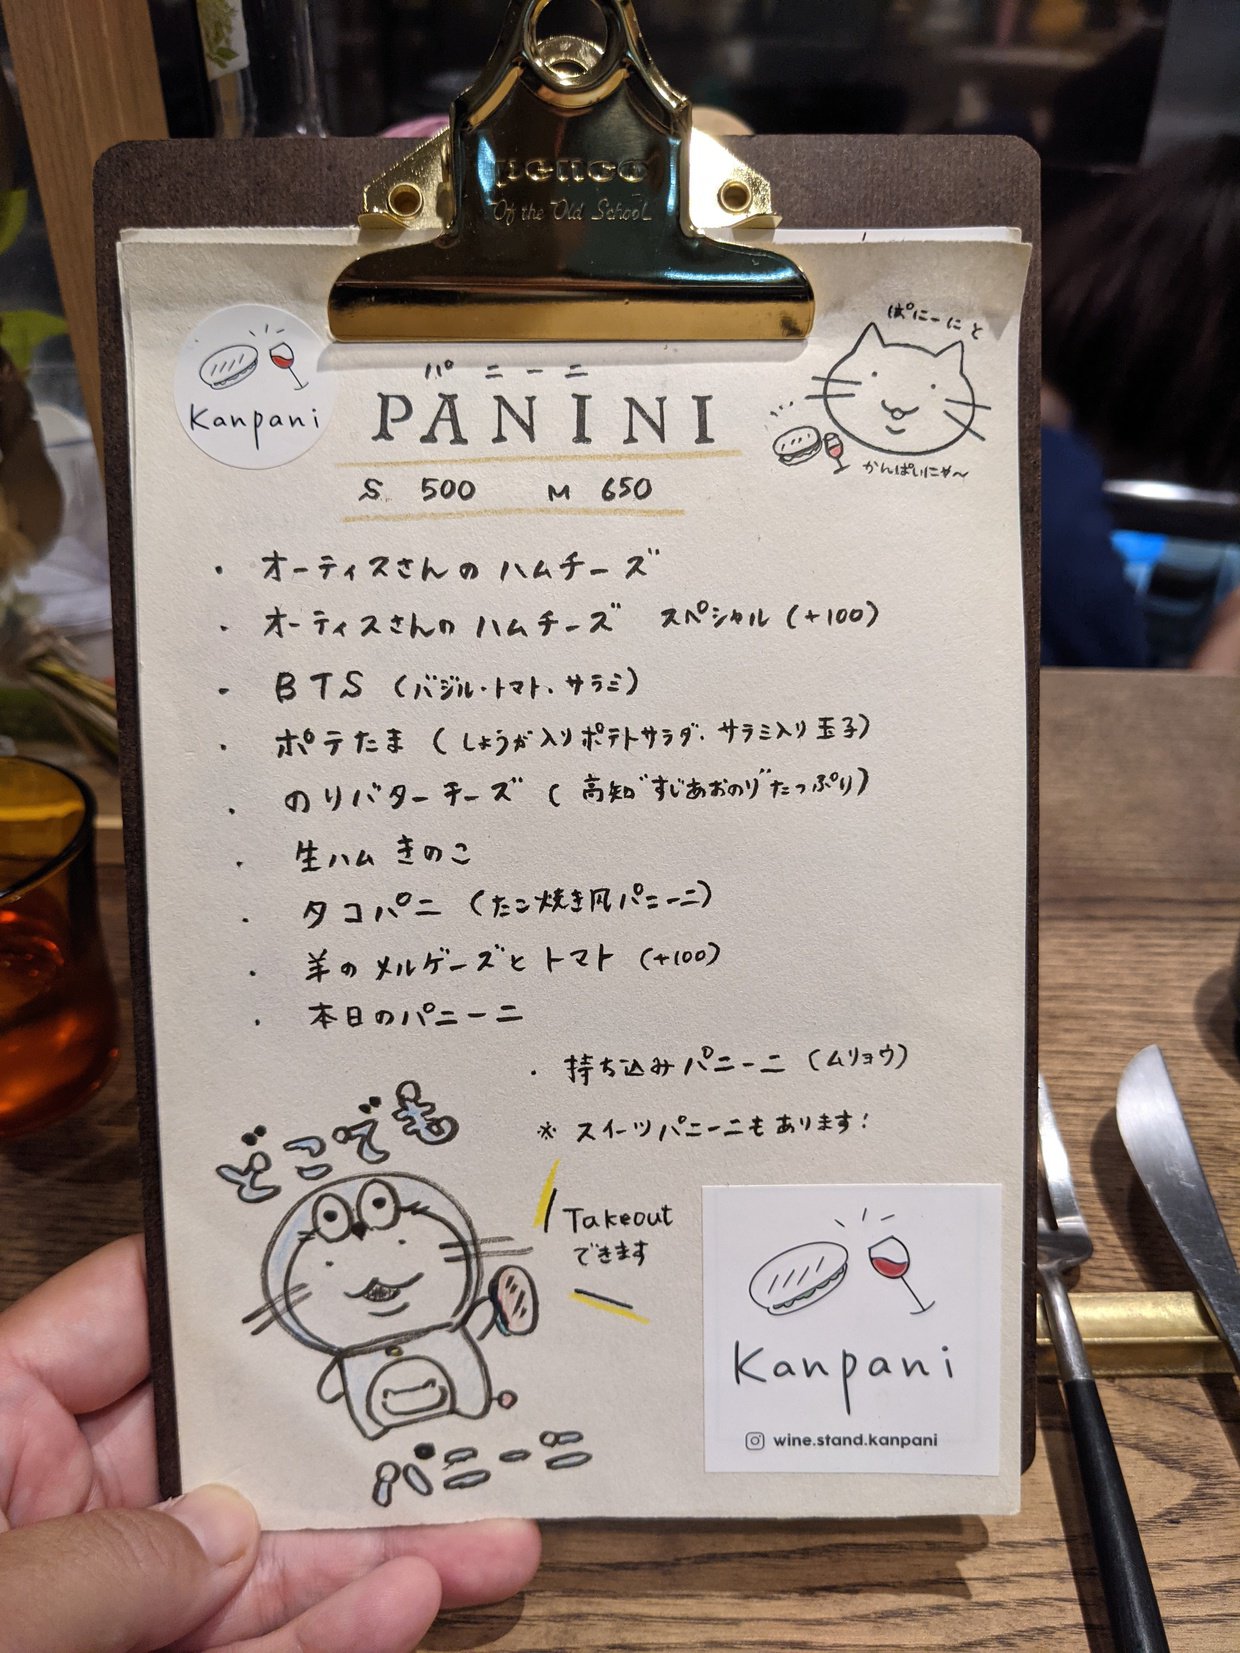 penco
Of the Old School
Kanpani
パニーニ
PANINI
S 500 M 650
ぱにーにと
かんぱいにゃ〜
・オーティスさんのハムチーズ
・オーティスさんのハムチーズ スペシャル (+100)
・BTS (バジル・トマト、サラミ)
・ポテたま (しょうが入りポテトサラダ、サラミ入り玉子)
・のりバターチーズ (高知"すじあおのり"たっぷり)
・生ハムきのこ
・タコパニ (たこ焼き風パニーニ)
・羊のメルゲーズとトマト (+100)
・本日のパニーニ
・持ち込みパニーニ (ムリョウ)
※ スイーツパニーニもあります!
どこでも
パニーニ
Takeout
できます
Kanpani
wine.stand.kanpani